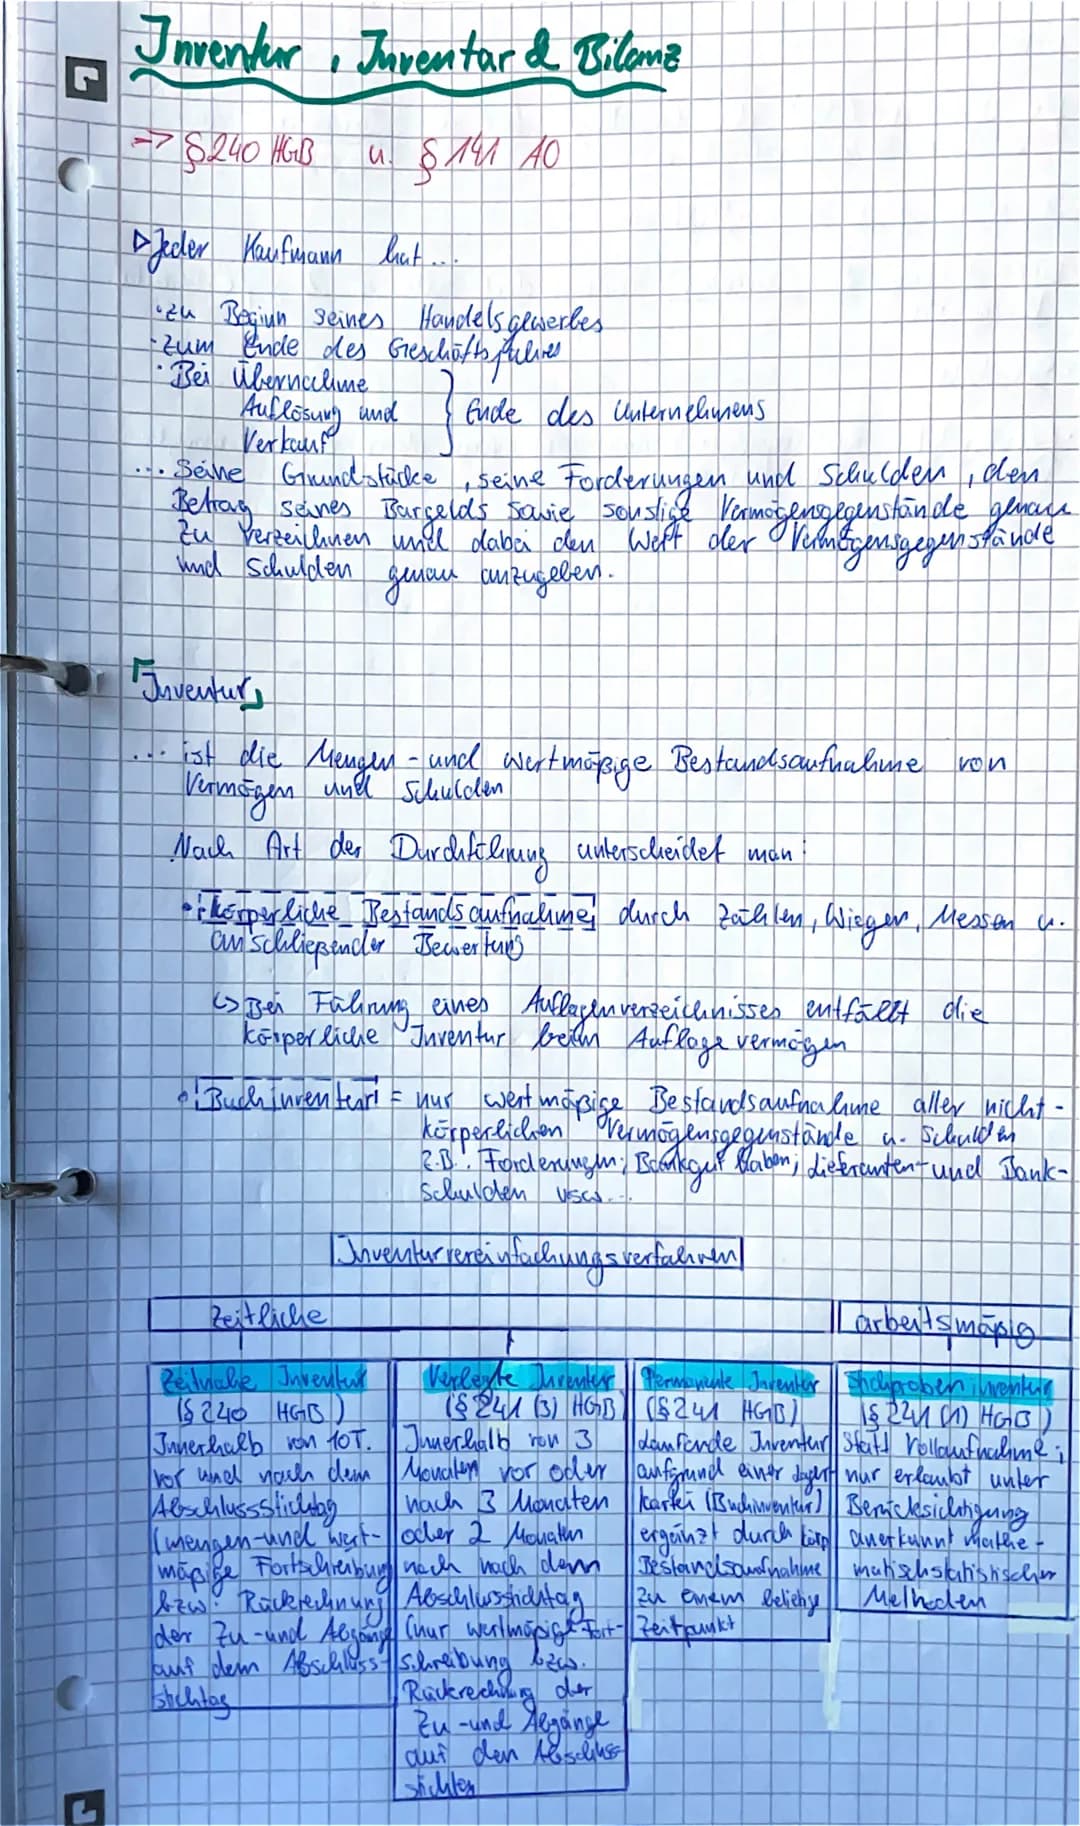 Inventur, Inventar & Bilanz
=> § 240 HGB u. § 141 AO
▷ Jeder Kaufmann hat...
• zu Beginn seines Handelsgewerbes
• zum Ende des Geschäftsjahres
• Bei Übernahme
Auflösung und } Ende des Unternehmens
Verkauf
... Seine Grundstücke, seine Forderungen und Schulden, den
Betrag seines Bargelds sowie sonstige Vermögensgegenstände genau
zu verzeichnen und dabei den Wert der Vermögensgegenstände
und Schulden genau anzugeben.
Inventur
... ist die Mengen- und wertmäßige Bestandsaufnahme von
Vermögen und Schulden
Nach Art der Durchführung unterscheidet man:
• körperliche Bestandsaufnahme durch Zählen, Wiegen, Messen u.
anschließender Bewertung
↳ Bei Führung eines Auflagenverzeichnisses entfällt die
körperliche Inventur beim Auflagevermögen
• Buchinventur = nur wertmäßige Bestandsaufnahme aller nicht-
körperlichen Vermögensgegenstände u. Schulden
z.B. Forderungen; Bankguthaben; Lieferanten- und Bank-
schulden usw...
Inventurvereinfachungsverfahren
Zeitliche arbeitsmäßig
Zeitnahe Inventur
(§ 240 HGB)
Innerhalb von 10T.
vor und nach dem
Abschlussstichtag
(mengen-und wert-
mäßige Fortschreibung
bzw. Rückrechnung
der Zu-und Abgänge
auf dem Abschluss-
stichtag
Verlegte Inventur
(§ 241 (3) HGB)
Innerhalb von 3
Monaten vor oder
nach 3 Monaten
oder 2 Monaten
nach nach dem
Abschlussstichtag
(nur wertmäßige Fort-
schreibung bzw.
Rückrechnung der
Zu-und Abgänge
auf den Abschluss
Permanente Inventur
(§ 241 HGB)
laufende Inventur
aufgrund einer Lager
kartei (Buchinventur)
ergänzt durch körp
Bestandsaufnahme
zu einem beliebige
Zeitpunkt
Stichprobeninventur
(§ 241 (1) HGB)
Statt Vollaufnahme;
nur erlaubt unter
Berücksichtigung
anerkannt mathe-
matischstatistischer
Methoden